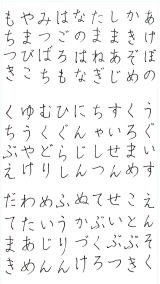 あけぼの
かきぞめ
しまあじ
たまねぎ
なのはな
はごろも
みつばち
やまびこ
もちつき
うぐいす
くろまめ
すいせん
ちゃせん
にんじん
ひぐらし
むくどり
ゆうやけ
くちぶえ
えんそく
ことぶき
せいぶつ
てぶくろ
ぬかづけ
ふうりん
めいじん
わたあめ
だてまき